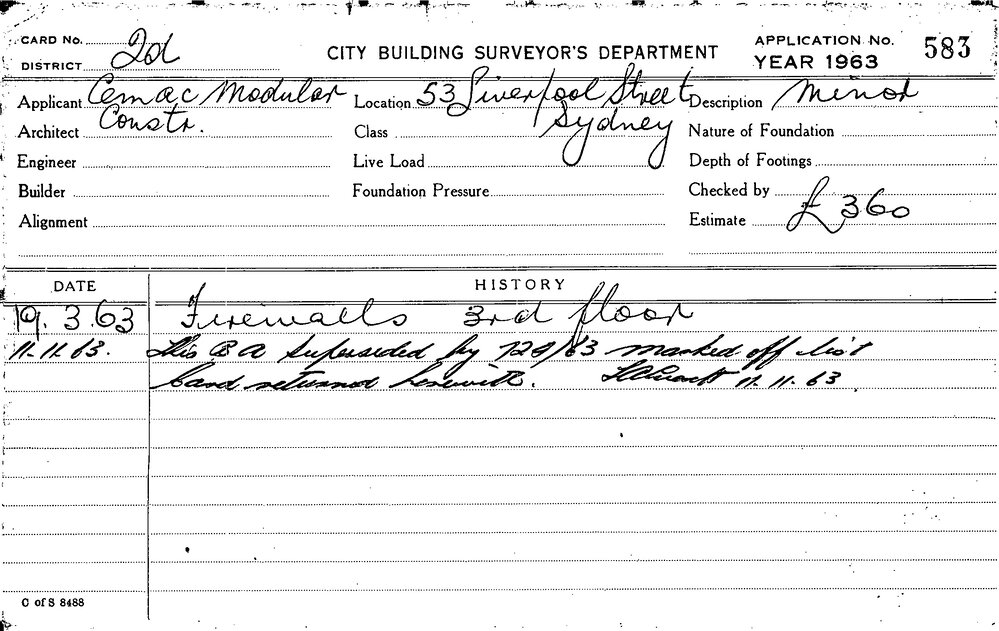 CARD No. 2d
DISTRICT
CITY BUILDING SURVEYOR'S DEPARTMENT
APPLICATION No. 583
YEAR 1963
Applicant Cemac Modular Location 53 Liverpool Street Description Minor
Architect Constr. Class Sydney Nature of Foundation
Engineer Live Load Depth of Footings
Builder Foundation Pressure Checked by
Alignment Estimate £ 360
DATE HISTORY
19.3.63 Firewalls 3rd floor
11.11.63. This B A superseded by /63 marked off list
Card returned herewith. 11.11.63
C of S 8488